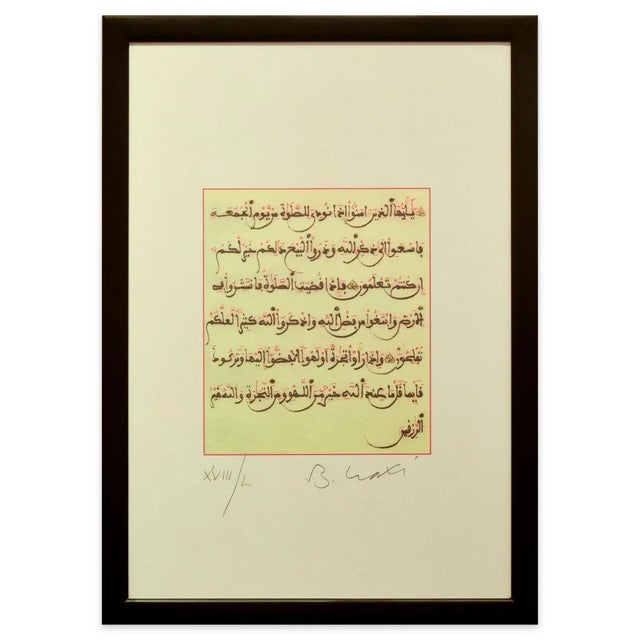 يَٰأَيُّهَا ٱلذِينَ ءَامَنُوٓا۟ إِذَا نُودِيَ لِلصَّلَوٰةِ مِنْ يَّوْمِ ٱلْجُمُعَةِ
فَاسْعَوِا۟ اِلَىٰ ذِكْرِ ٱللَّهِ وَذَرُوا۟ ٱلْبَيْعَ ذَٰلِكُمْ خَيْرٌ لَّكُمُۥٓ
إِن كُنتُمْ تَعْلَمُونَ فَإِذَا قُضِيَتِ ٱلصَّلَوٰةُ فَانتَشِرُوا۟ فِي
ٱلَارْضِ وَابْتَغُوا۟ مِن فَضْلِ ٱللَّهِ وَاذْكُرُوا۟ ٱللَّهَ كَثِيرًا لَّعَلَّكُمْ
تُفْلِحُونَ وَإِذَا رَأَوْا۟ تِجَٰرَةً اَوْ لَهْوًا ٱنفَضُّوٓا۟ إِلَيْهَا وَتَرَكُوكَ
قَآئِمًا قُلْ مَا عِندَ ٱللَّهِ خَيْرٌ مِّنَ ٱللَّهْوِ وَمِنَ ٱلتِّجَٰرَةِ وَاللَّهُ خَيْرُ
ٱلرَّٰزِقِينَ
XVIII/L